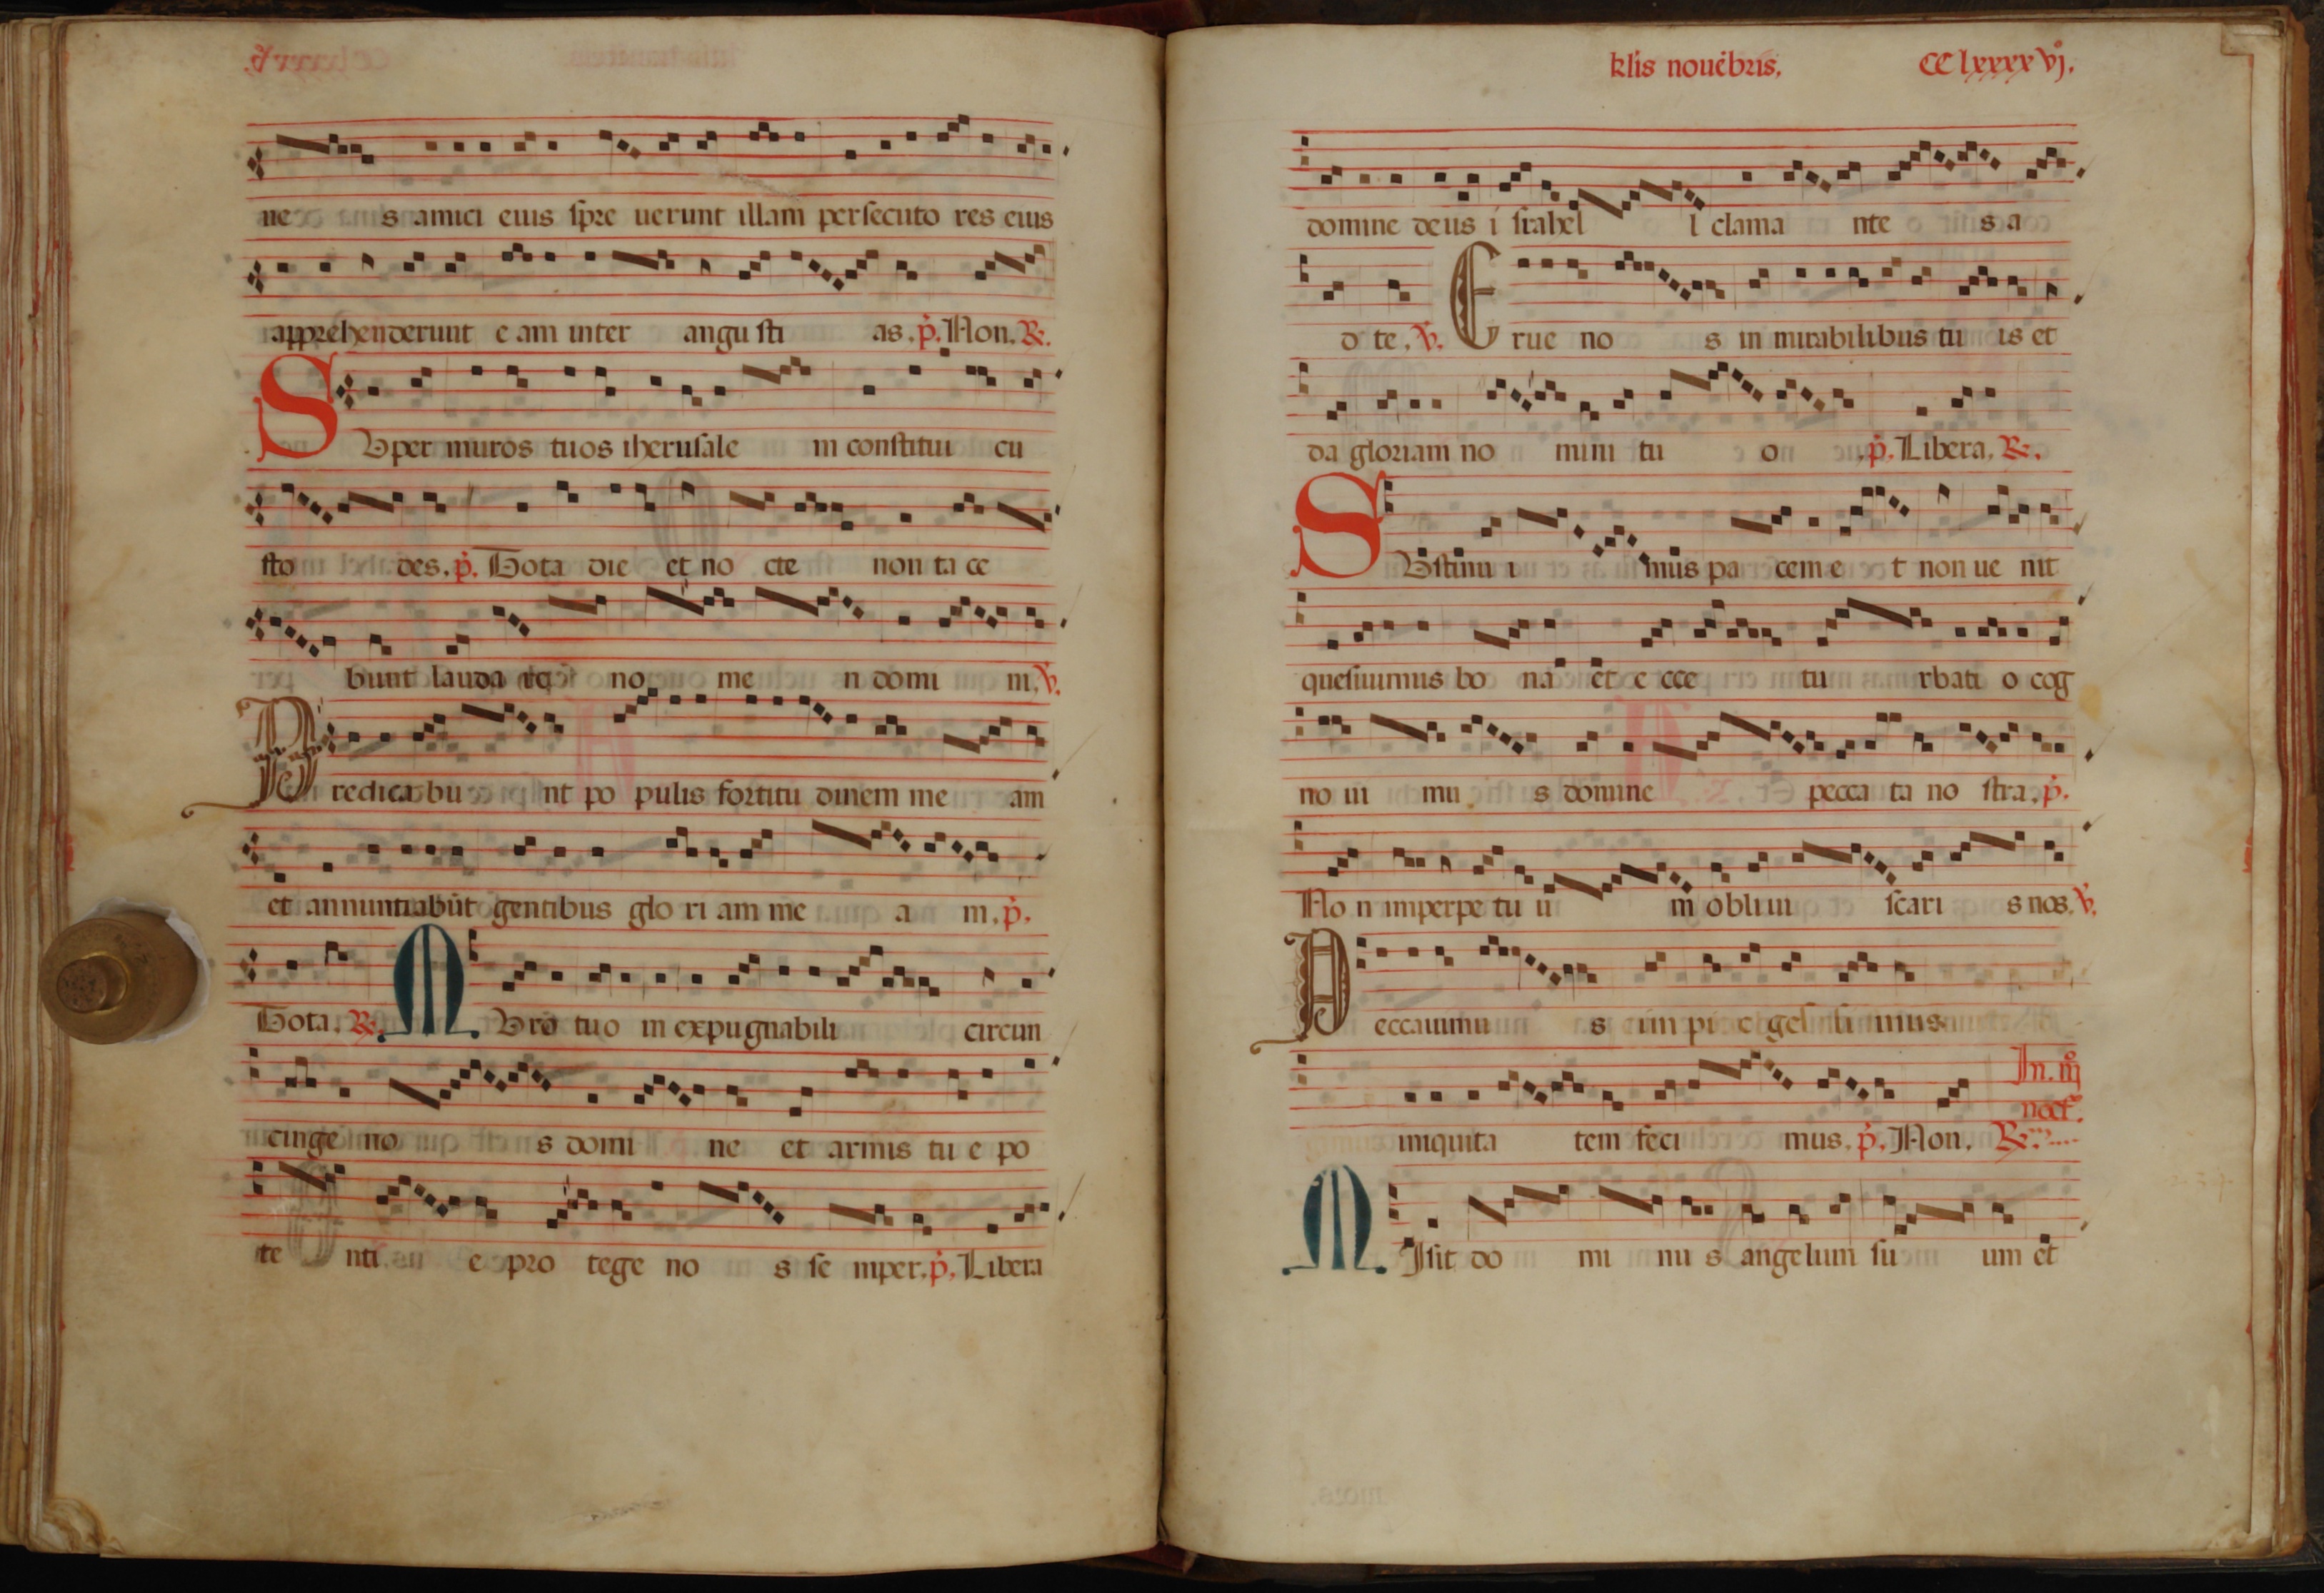 ne s amici eius spre uerunt illam persecuto res eius
apprehenderunt e am inter angu sti as. p̄. Non. R.
S Vper muros tuos iherusale m constitui cu
sto des. p̄. Tota die et no cte non ta ce
bunt lauda re no me n domi ni. V.
P redicabu nt po pulis fortitu dinem me am
et annuntiabūt gentibus glo ri am me a m. p̄.
Tota. R. M Vro tuo in expugnabili circun
cinge no s domi ne et armis tu e po
te nti e pro tege no s se mper. p̄. Libera
klis nouēbris. CC lxxxx vj.
domine deus i srahel l clama nte s a
d te. V. E rue no s in mirabilibus tu is et
da gloriam no mini tu o p̄. Libera. R.
S Vstinu i mus pa cem e t non ue nit
quesiuimus bo na et e cce tu rbati o cog
no ui mu s domine pecca ta no stra. p̄.
No n imperpe tu u m obliui scari s nos. V.
P eccauimu s im pi e ges si mus
In. iij
noct.
iniquita tem feci mus. p̄. Non. R.
M Isit do mi nu s angelum su um et